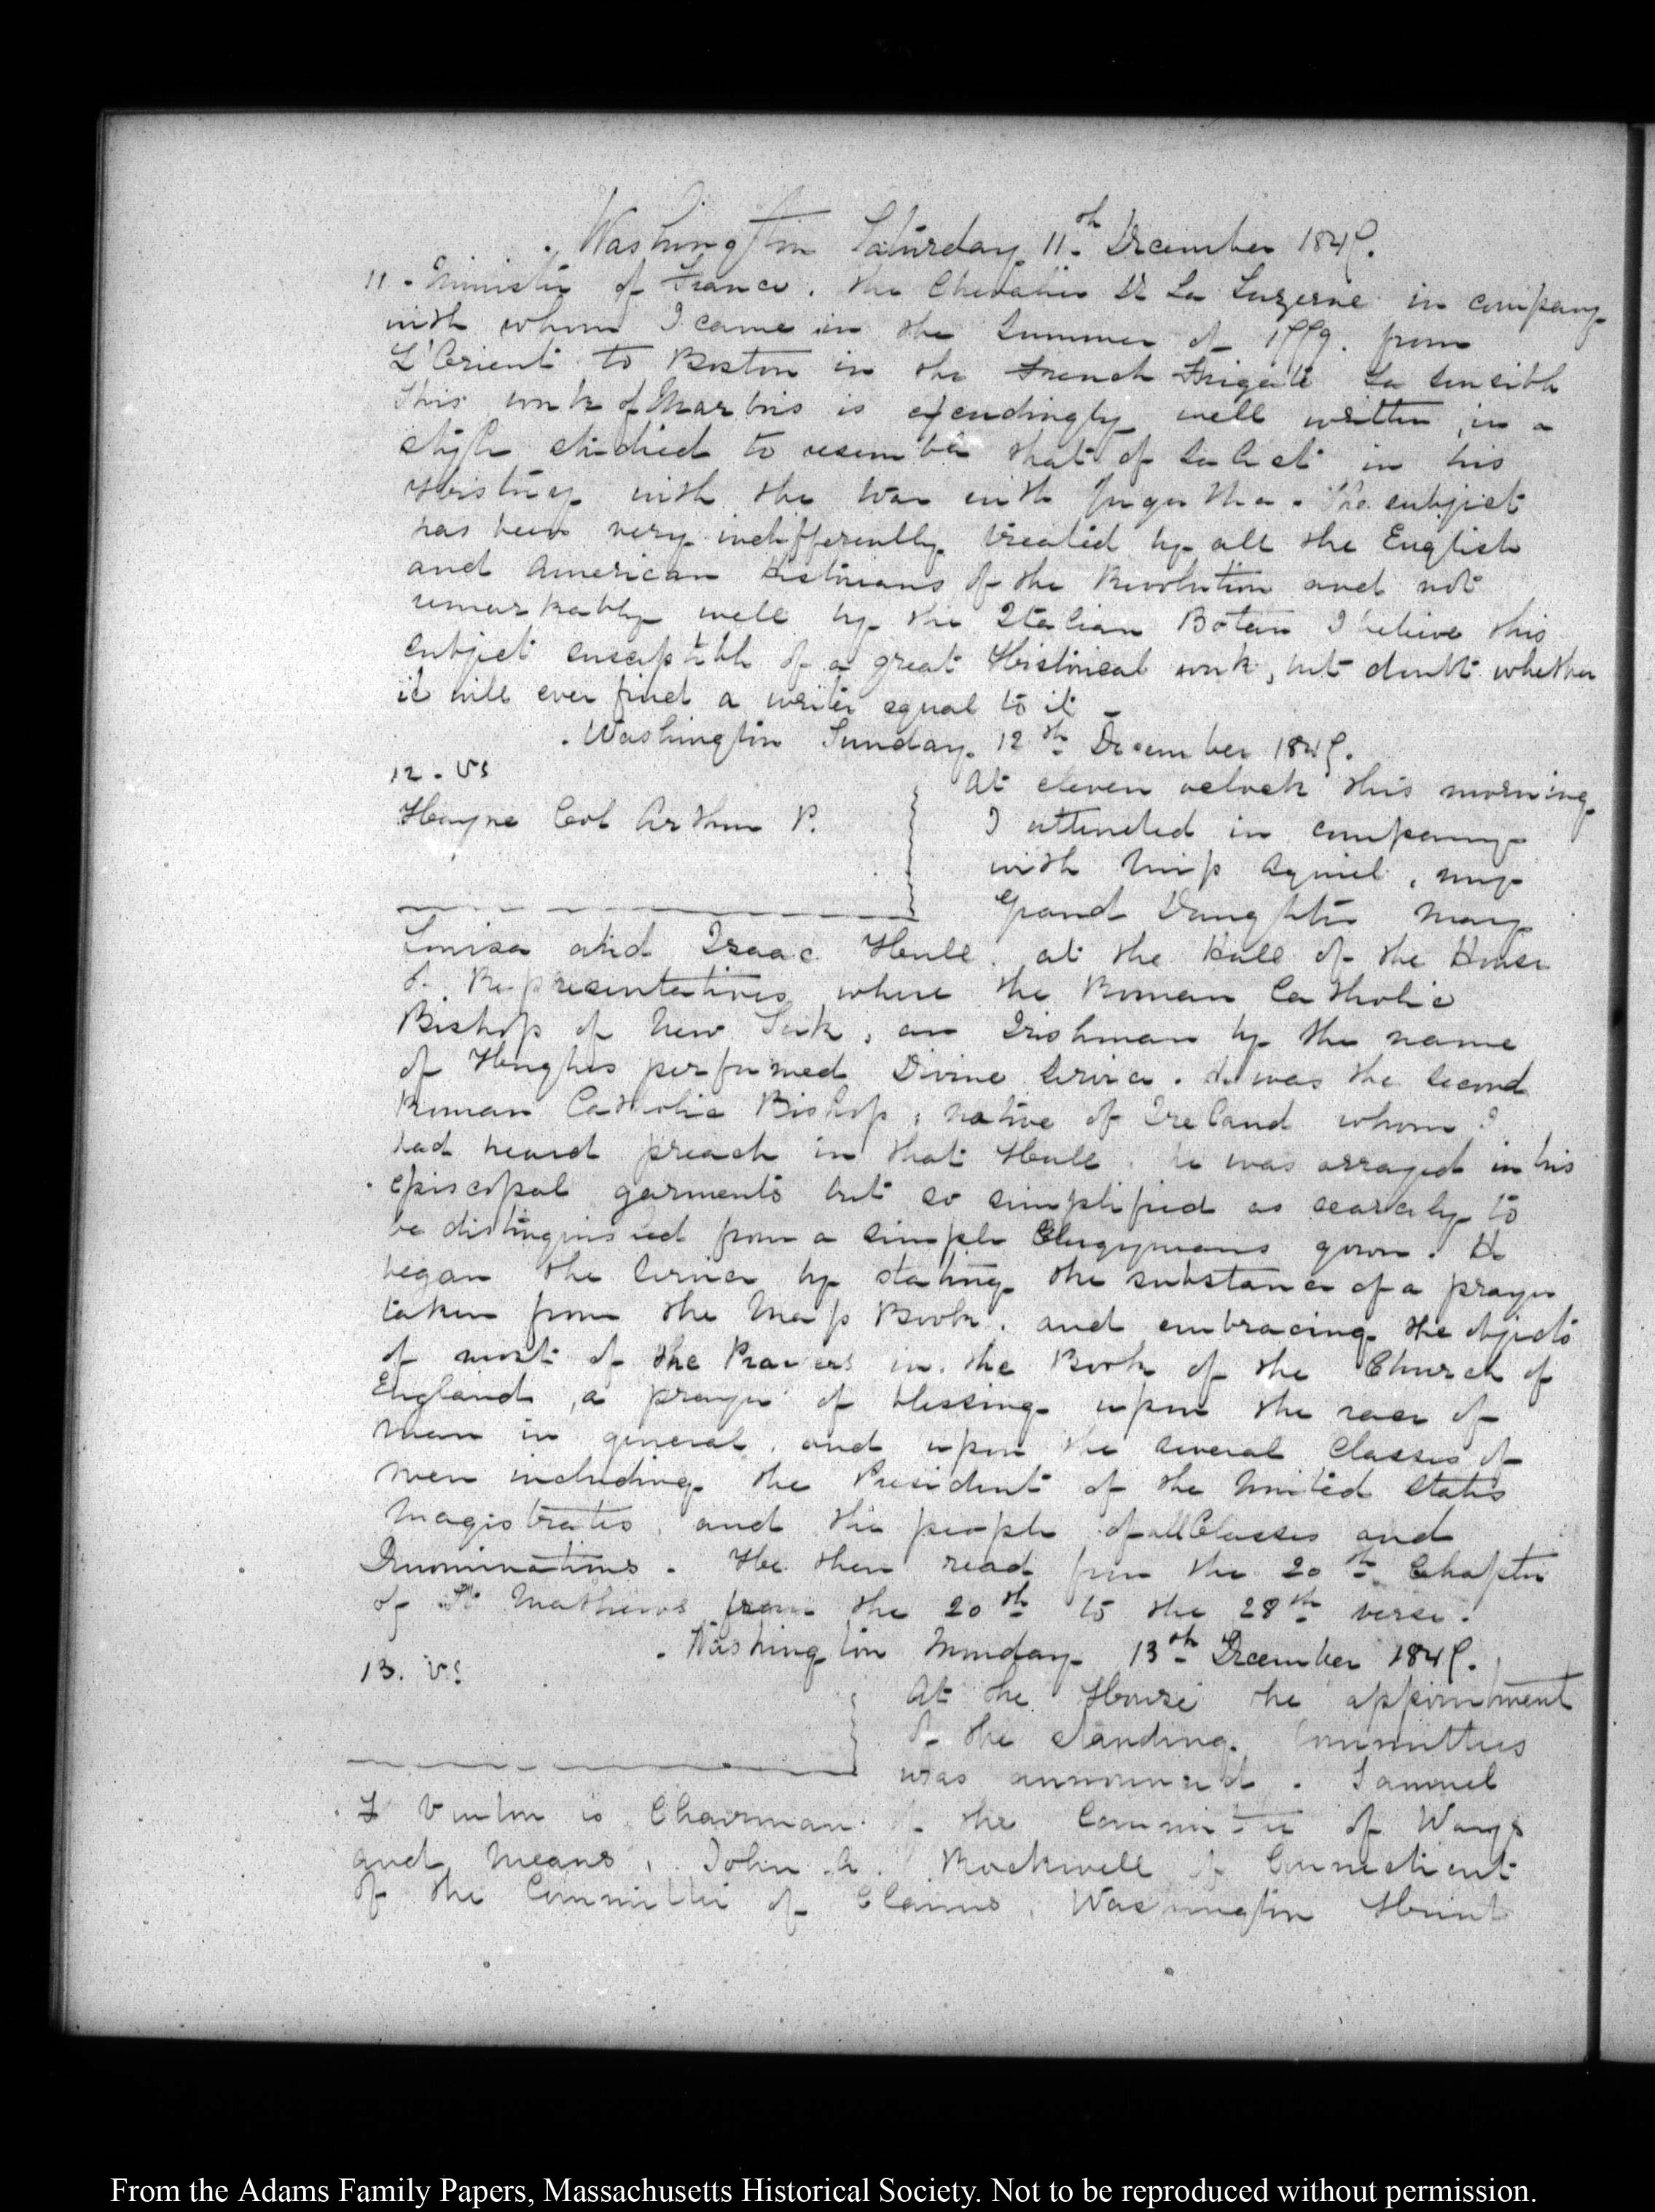 . Washington Saturday 11th December 1847.
11 - Minister of France. the Chevalier De La Luzerne in company
with whom I came in the Summer of 1779. from
L'Orient to Boston in the French Frigate La Sensible
This work of Marbois is exceedingly well written, in a
style studied to resemble that of Salust in his
History with the War with Jugurtha. The subject
has been very indifferently treated by all the English
and American Historians of the Revolution and not
remarkably well by the Italian Botan I believe this
subject susceptible of a great Historical work, but doubt whether
it will ever find a writer equal to it -
. Washington Sunday. 12th December 1847.
12. V5
Hayne Col Arthur P.
At eleven oclock this morning
I attended in company
with Miss , my
Grand Daughter Mary
Louisa and Isaac Hull. at the Hall of the House
of Representatives where the Roman Catholic
Bishop of New York, an Irishman by the name
of Hughes performed Divine Service. he was the second
Roman Catholic Bishop, native of Ireland whom I
had heard preach in that Hall. he was arrayed in his
episcopal garments but so simplified as scarcely to
be distinguished from a simple Clergymans gown. He
began the Service by stating the substance of a prayer
taken from the Mass Book. and embracing the objects
of most of the Prayers in the Book of the Church of
England, a prayer of blessing upon the race of
man in general. and upon the several Classes of
men including the President of the United States
Magistrates, and the people of all Classes and
Denominations. He then read from the 20th Chapter
of St Mathews from the 20th to the 28th verse.
. Washington Monday 13th December 1847.
13. V.
At the House the appointment
of the standing Committees
was announced. Samuel
F Vinton is Chairman of the Committee of Ways
and Means, John A. Rockwell of Connecticut
of the Committee of Claims, Washington Hunt
From the Adams Family Papers, Massachusetts Historical Society. Not to be reproduced without permission.